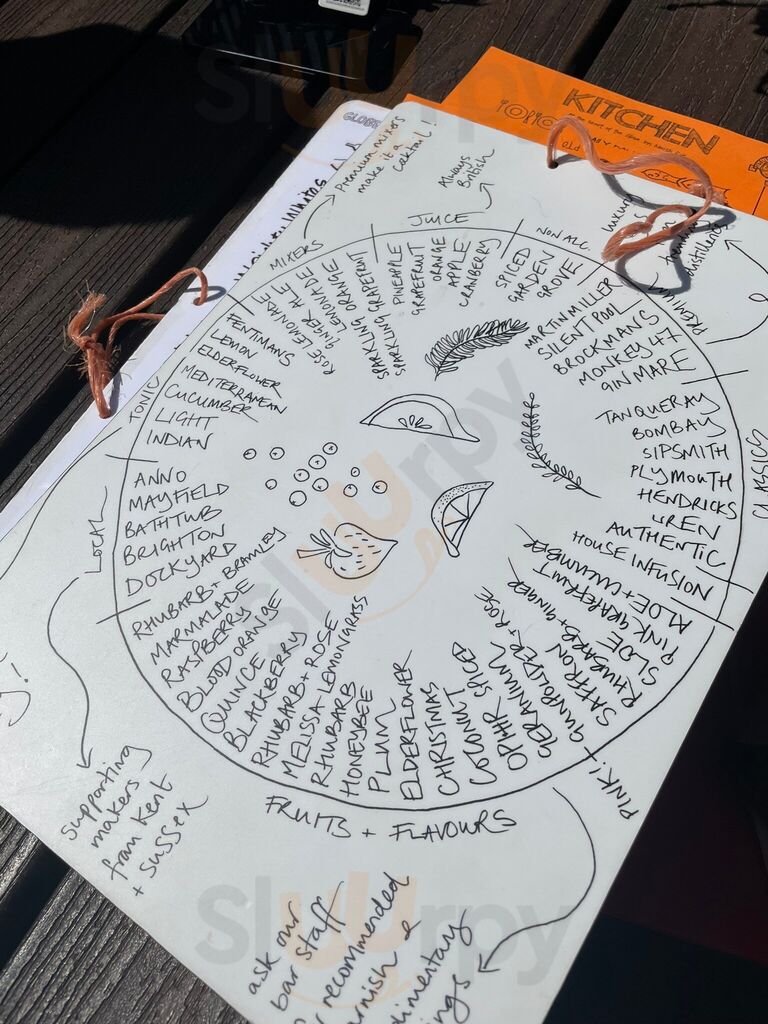 KITCHEN
Premium mixers
make it a
cocktail!
Always
British
MIXERS
JUICE
NON ALC
ROSE LEMONADE
GINGER ALE
LEMONADE
SPARKLING ORANGE
SPARKLING GRAPEFRUIT
PINEAPPLE
GRAPEFRUIT
ORANGE
APPLE
CRANBERRY
SPICED
GARDEN
GROVE
luxury
distillers
PREMIUM
MARTIN MILLER
SILENT POOL
BROCKMANS
MONKEY 47
GIN MARE
CLASSICS
TANQUERAY
BOMBAY
SIPSMITH
PLYMOUTH
HENDRICKS
AUTHENTIC
HOUSE INFUSION
ALOE + CUCUMBER
PINK GRAPEFRUIT
SLOE
RHUBARB + GINGER
SAFFRON
GUNPOWDER + ROSE
GERANIUM
OPIHR SPICED
COCONUT
CHRISTMAS
ELDERFLOWER
PLUM
HONEYBEE
RHUBARB
MELISSA-LEMONGRASS
RHUBARB + ROSE
BLACKBERRY
QUINCE
BLOOD ORANGE
RASPBERRY
MARMALADE
RHUBARB + BRAMLEY
PINK!
FRUITS + FLAVOURS
TONIC
FENTIMANS
LEMON
ELDERFLOWER
MEDITERRANEAN
CUCUMBER
LIGHT
INDIAN
LOCAL
ANNO
MAYFIELD
BATHTUB
BRIGHTON
DOCKYARD
supporting
makers
from Kent
+ Sussex
ask our
bar staff
recommended
Slurpy
Slurpy
Slurpy